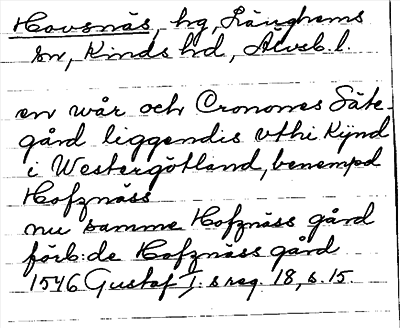 Hovsnäs, hg, Länghems
sn, Kinds hd, Älvsb. l.
en wår och Cronones Säte-
gård liggendis vthi Kijnd
i Westergötland, benempd
Hofznäss
nu samme Hofznäss gård
förb:de Hofznäss gård
1546 Gustaf I:s reg. 18, s. 15.